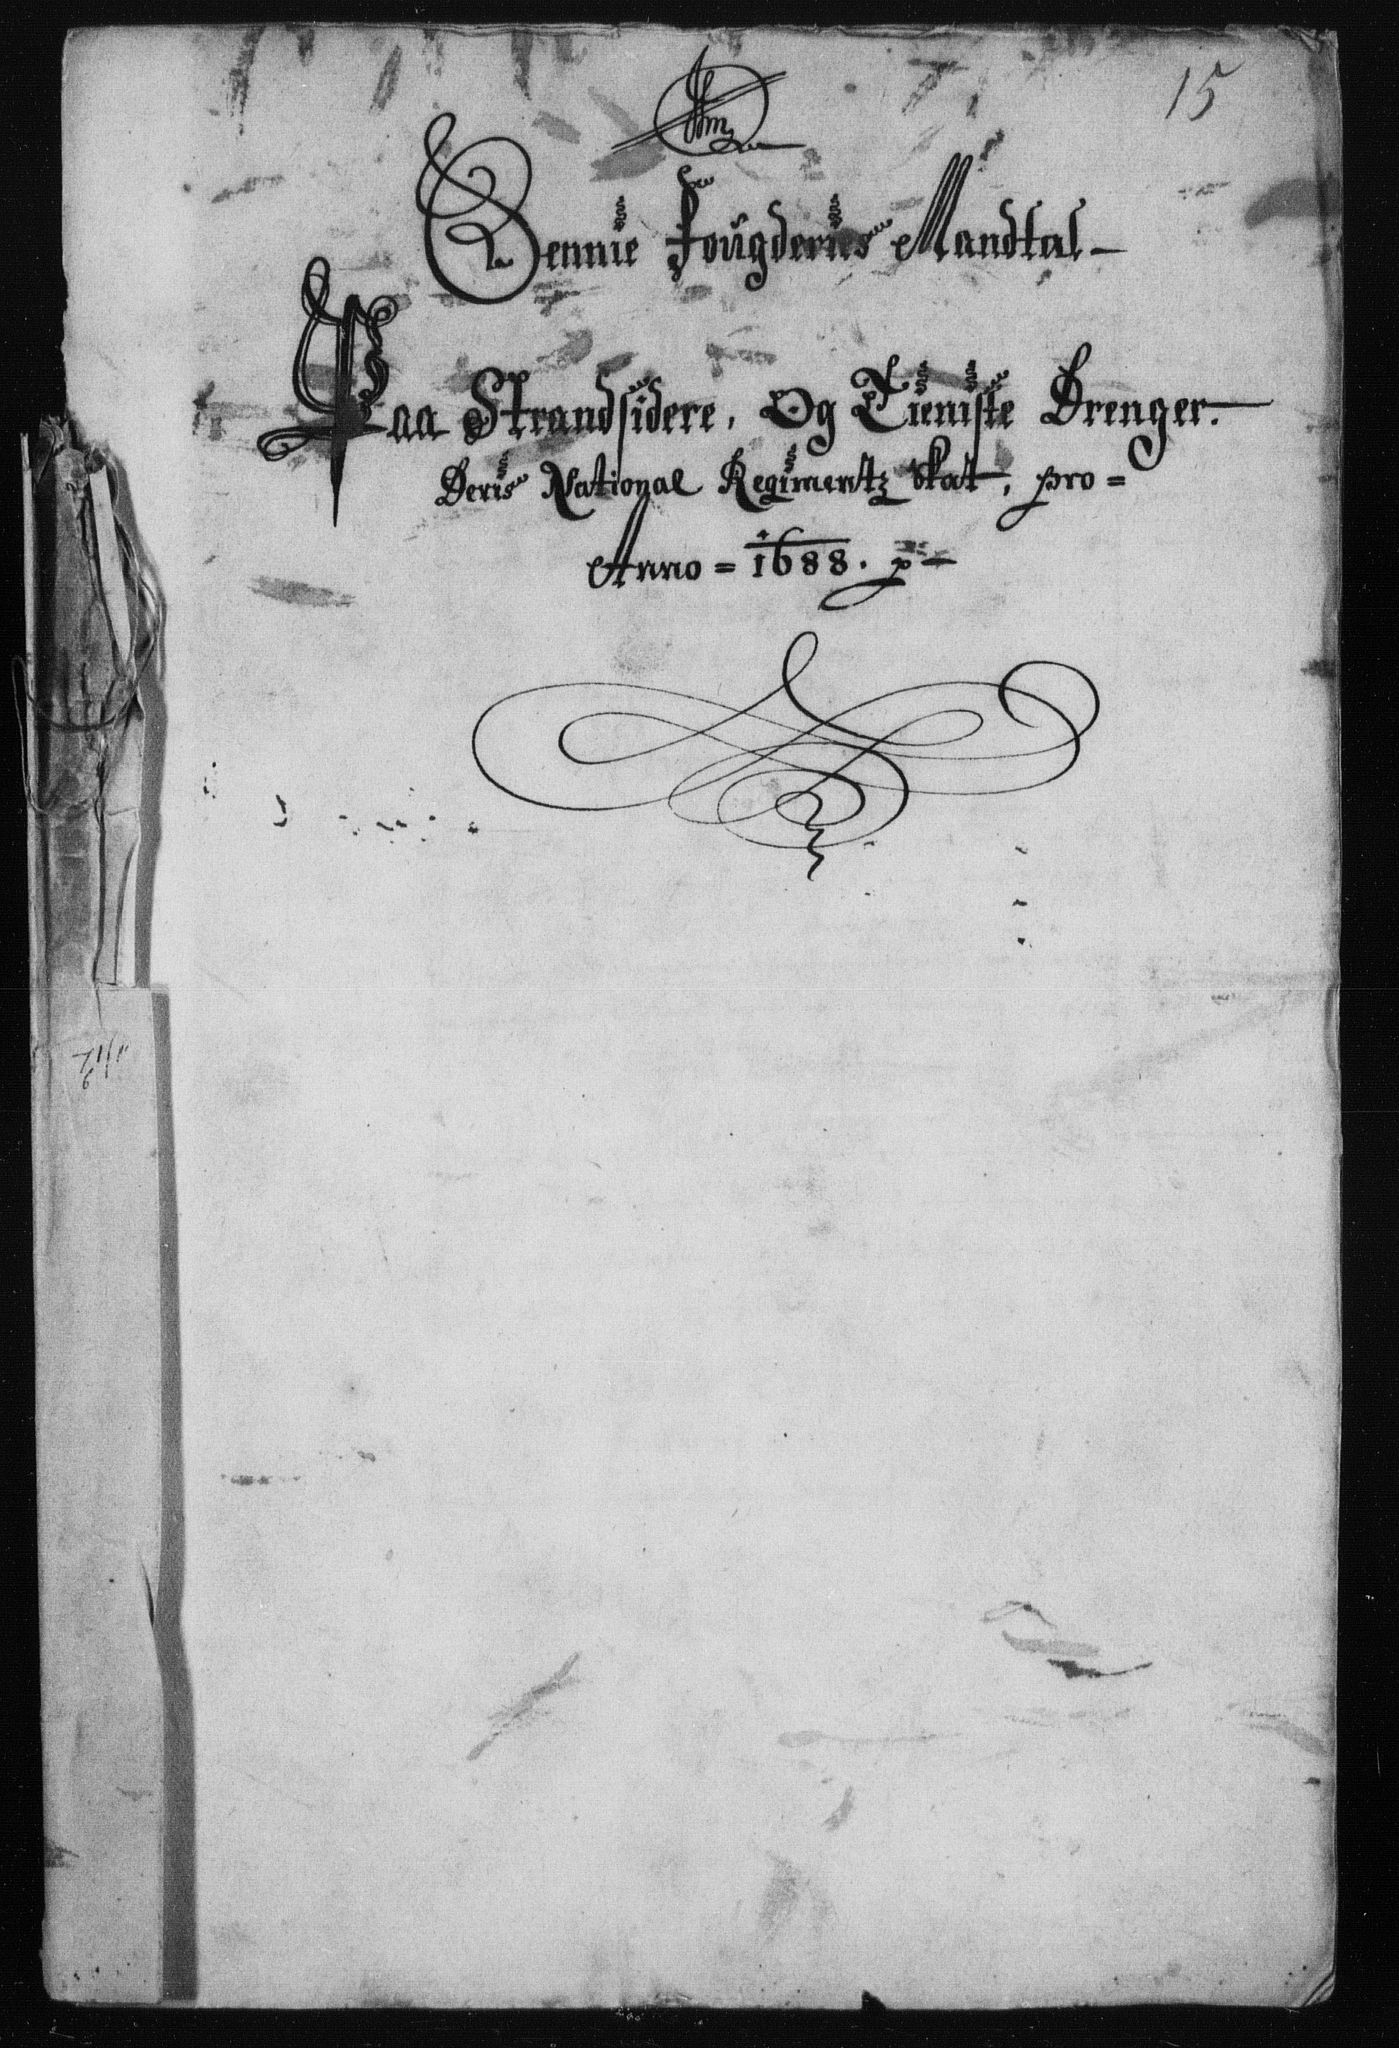 15
Sennie Fougderies Mandtal
Paa Strandsidere, Og Tieniste Drenger.
Deris National Regimentz skat, pro =
Anno = 1688. p